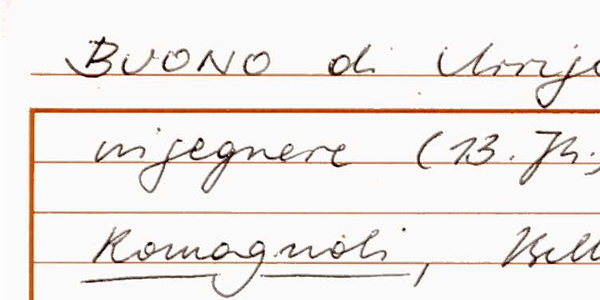 BUONO di
ingegnere (13. Jh.)
Romagnoli,